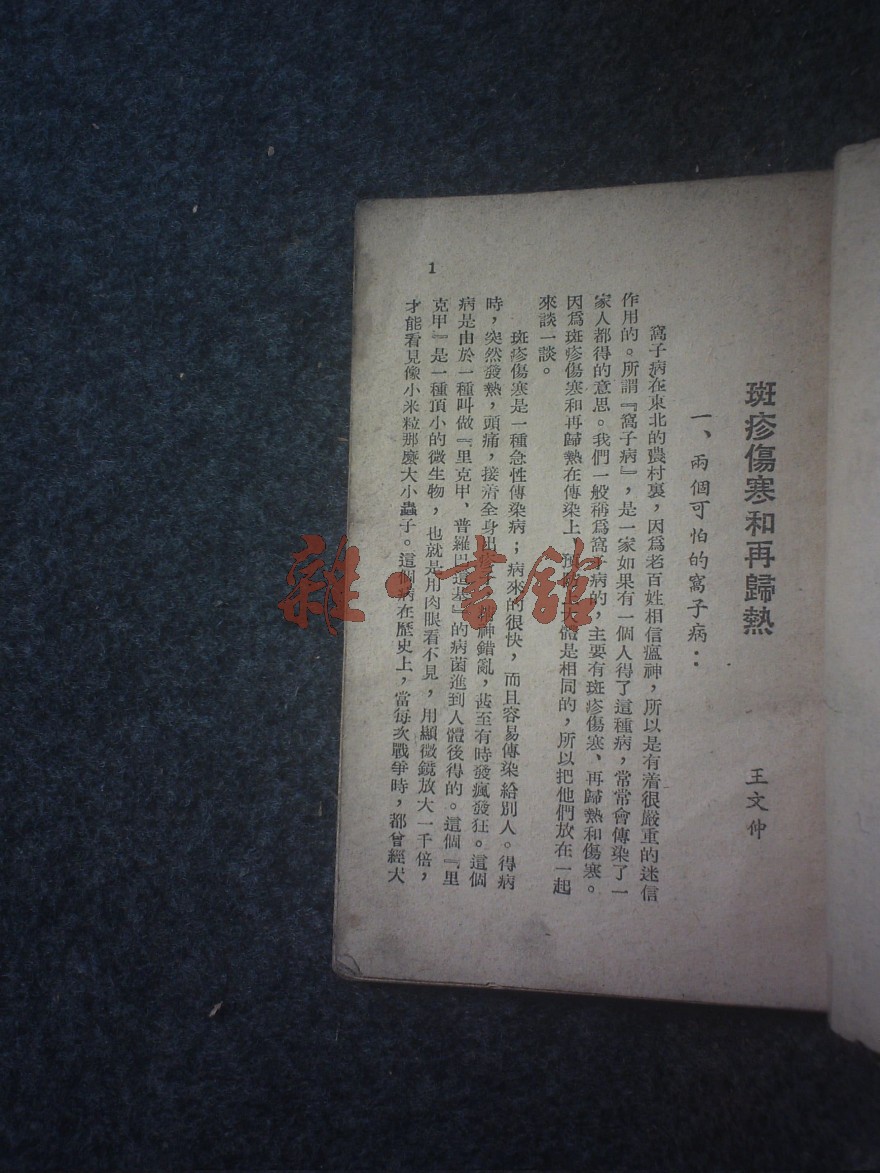 斑疹傷寒和再歸熱
王文仲
一、兩個可怕的窩子病：
窩子病在東北的農村裏，因爲老百姓相信瘟神，所以是有着很嚴重的迷信
作用的。所謂『窩子病』，是一家如果有一個人得了這種病，常常會傳染了一
家人都得的意思。我們一般稱爲窩子病的，主要有斑疹傷寒、再歸熱和傷寒。
因爲斑疹傷寒和再歸熱在傳染上，預防上大體是相同的，所以把他們放在一起
來談一談。
斑疹傷寒是一種急性傳染病；病來的很快，而且容易傳染給別人。得病
時，突然發熱，頭痛，接着全身出神錯亂，甚至有時發瘋發狂。這個
病是由於一種叫做『里克甲、普羅巴達基』的病菌進到人體後得的。這個『里
克甲』是一種頂小的微生物，也就是用肉眼看不見，用顯微鏡放大一千倍，
才能看見像小米粒那麼大小蟲子。這個病在歷史上，當每次戰爭時，都曾經犬
1
雜·書館